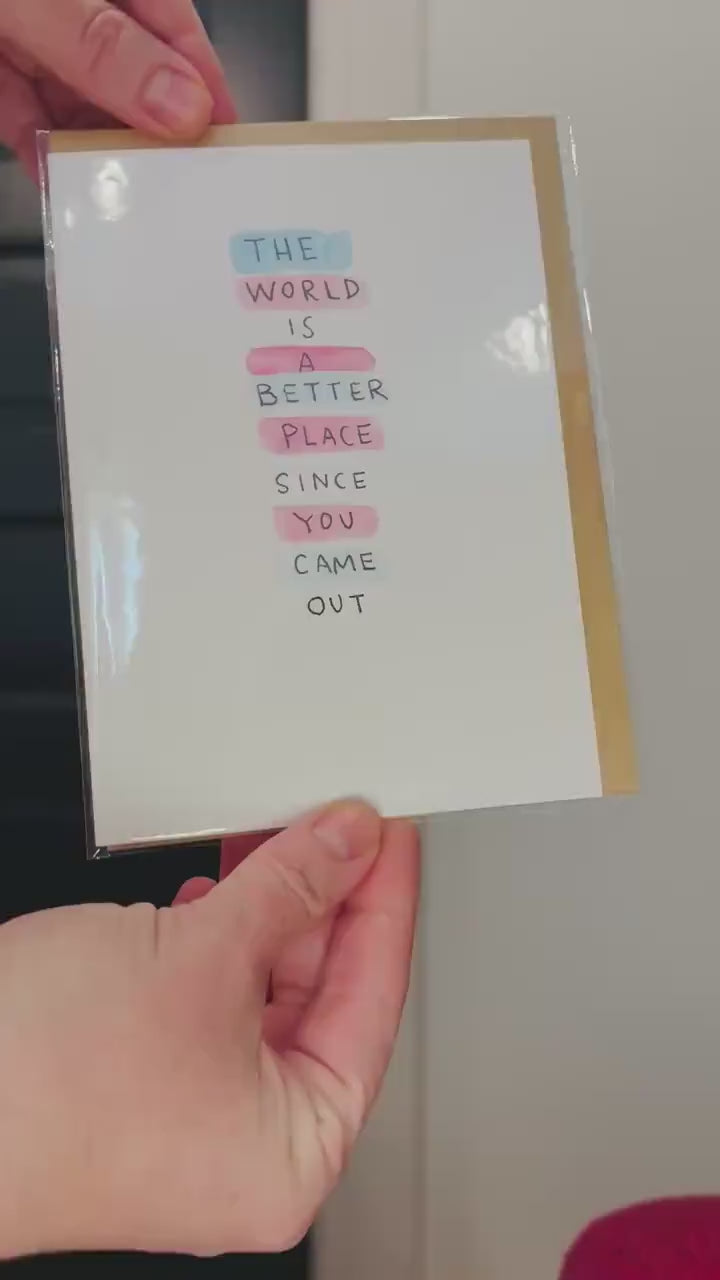 THE
WORLD
IS
A
BETTER
PLACE
SINCE
YOU
CAME
OUT